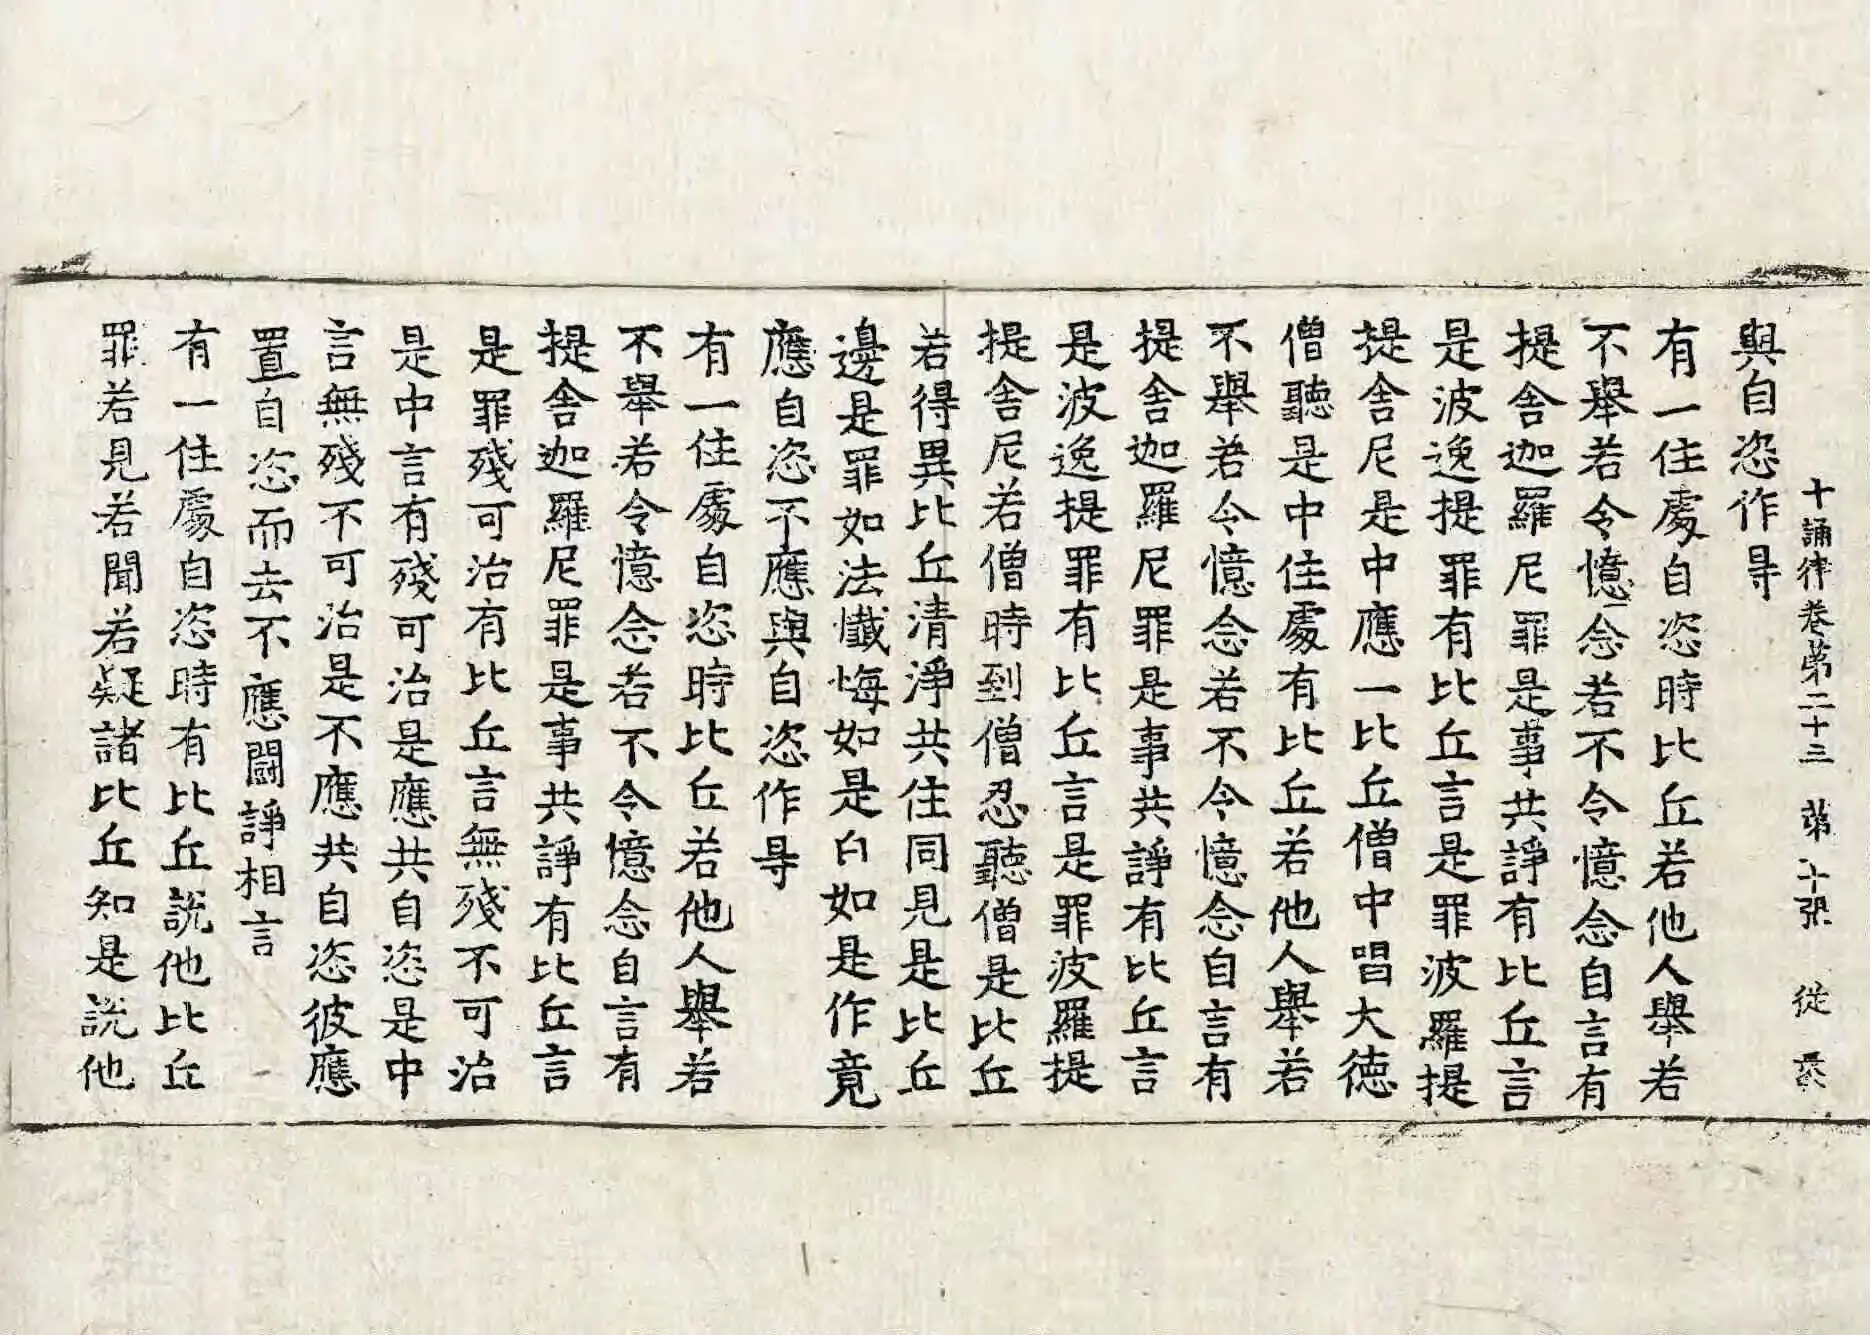 十誦律卷第二十三 第十張 從
與自恣作㝵
有一住處自恣時比丘若他人舉若
不舉若令憶念若不令憶念自言有
提舍迦羅尼罪是事共諍有比丘言
是波逸提罪有比丘言是罪波羅提
提舍尼是中應一比丘僧中唱大德
僧聽是中住處有比丘若他人舉若
不舉若令憶念若不令憶念自言有
提舍迦羅尼罪是事共諍有比丘言
是波逸提罪有比丘言是罪波羅提
提舍尼若僧時到僧忍聽僧是比丘
若得異比丘清淨共住同見是比丘
邊是罪如法懺悔如是白如是作竟
應自恣不應與自恣作㝵
有一住處自恣時比丘若他人舉若
不舉若令憶念若不令憶念自言有
提舍迦羅尼罪是事共諍有比丘言
是罪殘可治有比丘言無殘不可治
是中言有殘可治是應共自恣是中
言無殘不可治是不應共自恣彼應
置自恣而去不應鬪諍相言
有一住處自恣時有比丘說他比丘
罪若見若聞若疑諸比丘知是說他